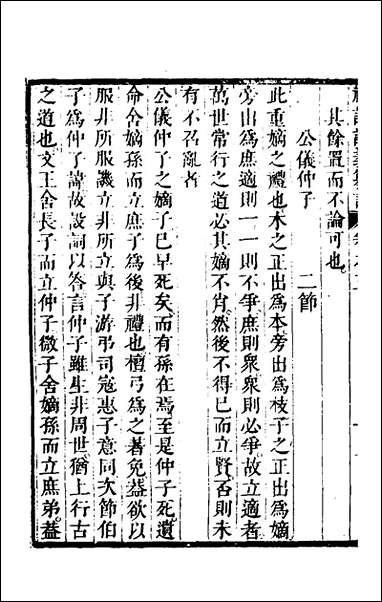 其餘置而不論可也
公儀仲子　二節
此重嫡之禮也木之正出爲本旁出爲枝子之正出爲嫡
旁出爲庶適則一一則不爭庶則衆衆則必爭故立適者
萬世常行之道必其嫡不肖然後不得已而立賢否則未
有不召亂者
公儀仲子之嫡子已早死矣而有孫在焉至是仲子死遺
命舍嫡孫而立庶子爲後非禮也檀弓爲之著免葢欲以
服非所服譏立非所立與子游弔司寇惠子意同次節伯
子爲仲子諱故設詞以答言仲子雖生非周世猶上行古
之道也文王舍長子而立仲子微子舍嫡孫而立庶弟葢